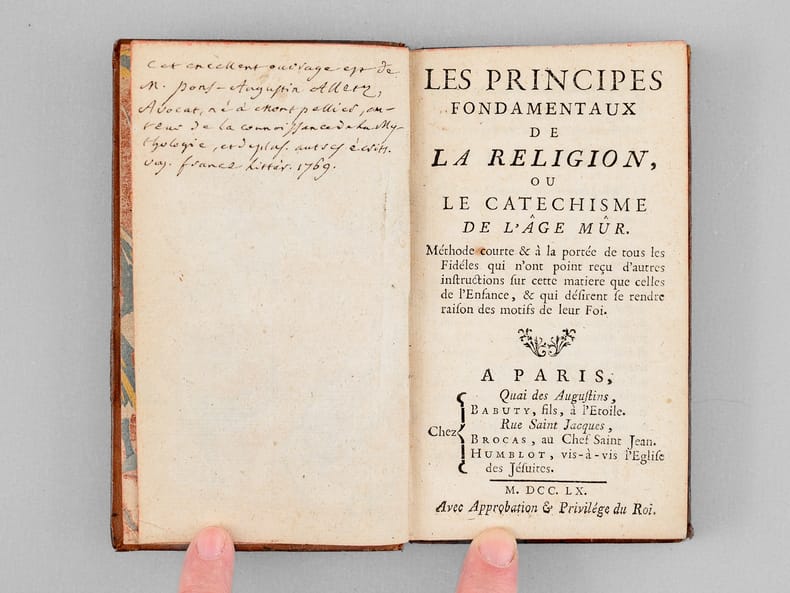 Cet excellent ouvrage est de
M. Pons-Augustin Alletz,
Avocat, né à Montpellier, au-
teur de la connoissance de la My-
thologie, et de plus. autres écrits.
voy. france littér. 1769.
LES PRINCIPES
FONDAMENTAUX
DE
LA RELIGION,
OU
LE CATECHISME
DE L'ÂGE MÛR.
Méthode courte & à la portée de tous les
Fidéles qui n'ont point reçu d'autres
inſtructions ſur cette matiere que celles
de l'Enfance, & qui déſirent ſe rendre
raiſon des motifs de leur Foi.
A PARIS,
Quai des Auguſtins,
BABUTY, fils, à l'Etoile.
Rue Saint Jacques,
Chez BROCAS, au Chef Saint Jean.
HUMBLOT, vis-à-vis l'Egliſe
des Jéſuites.
M. DCC. LX.
Avec Approbation & Privilége du Roi.